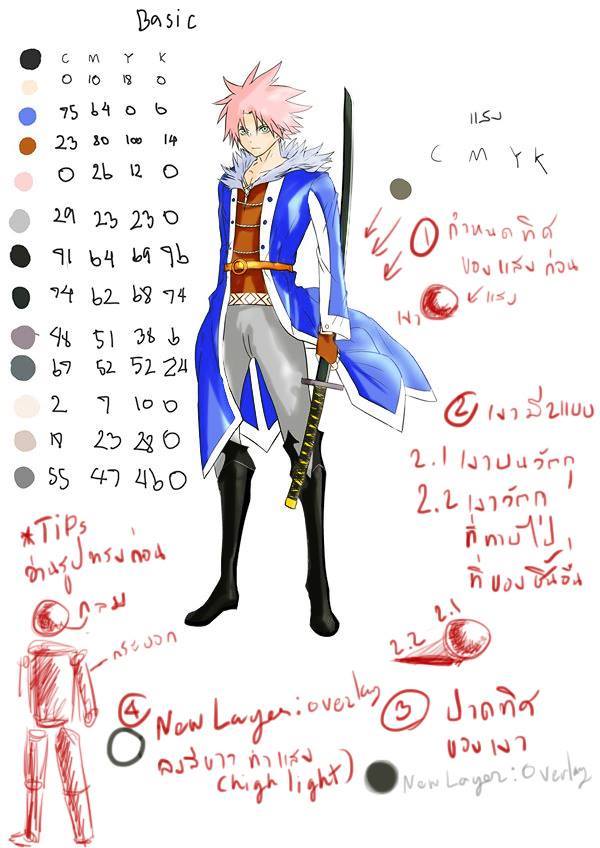 Basic
C M Y K
0 10 18 0
75 64 0 0
23 80 100 14
0 26 12 0
29 23 23 0
91 64 69 96
74 62 68 74
48 51 38 6
67 52 52 24
2 7 10 0
19 23 28 0
55 47 46 0
แรง
C M Y K
1 กำหนดทิศ
ของแสงก่อน
แสง
เงา
2 เงามี 2 แบบ
2.1 เงาบนวัตถุ
2.2 เงาวัตถุ
ที่ทาบไป
ที่ของชิ้นอื่น
2.1
2.2
3 ปาดทิศ
ของเงา
New Layer: Overlay
*TiPs
อ่านรูปทรงก่อน
กลม
กระบอก
4 New Layer: overlay
ลงสีขาว ทำแสง
(high light)